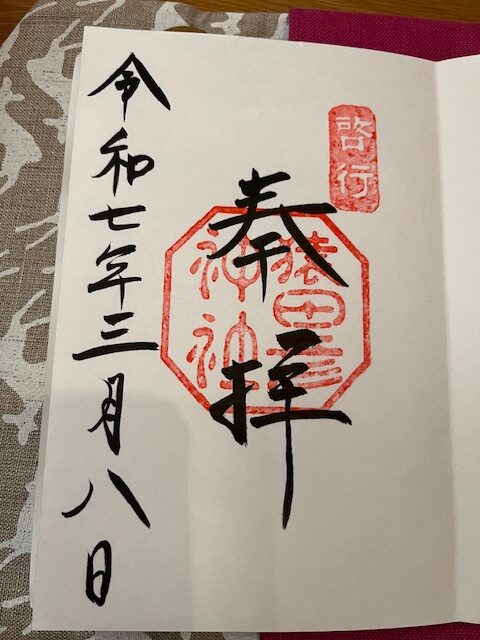 啓行
奉拝
猿田彦
神社
令和七年三月八日